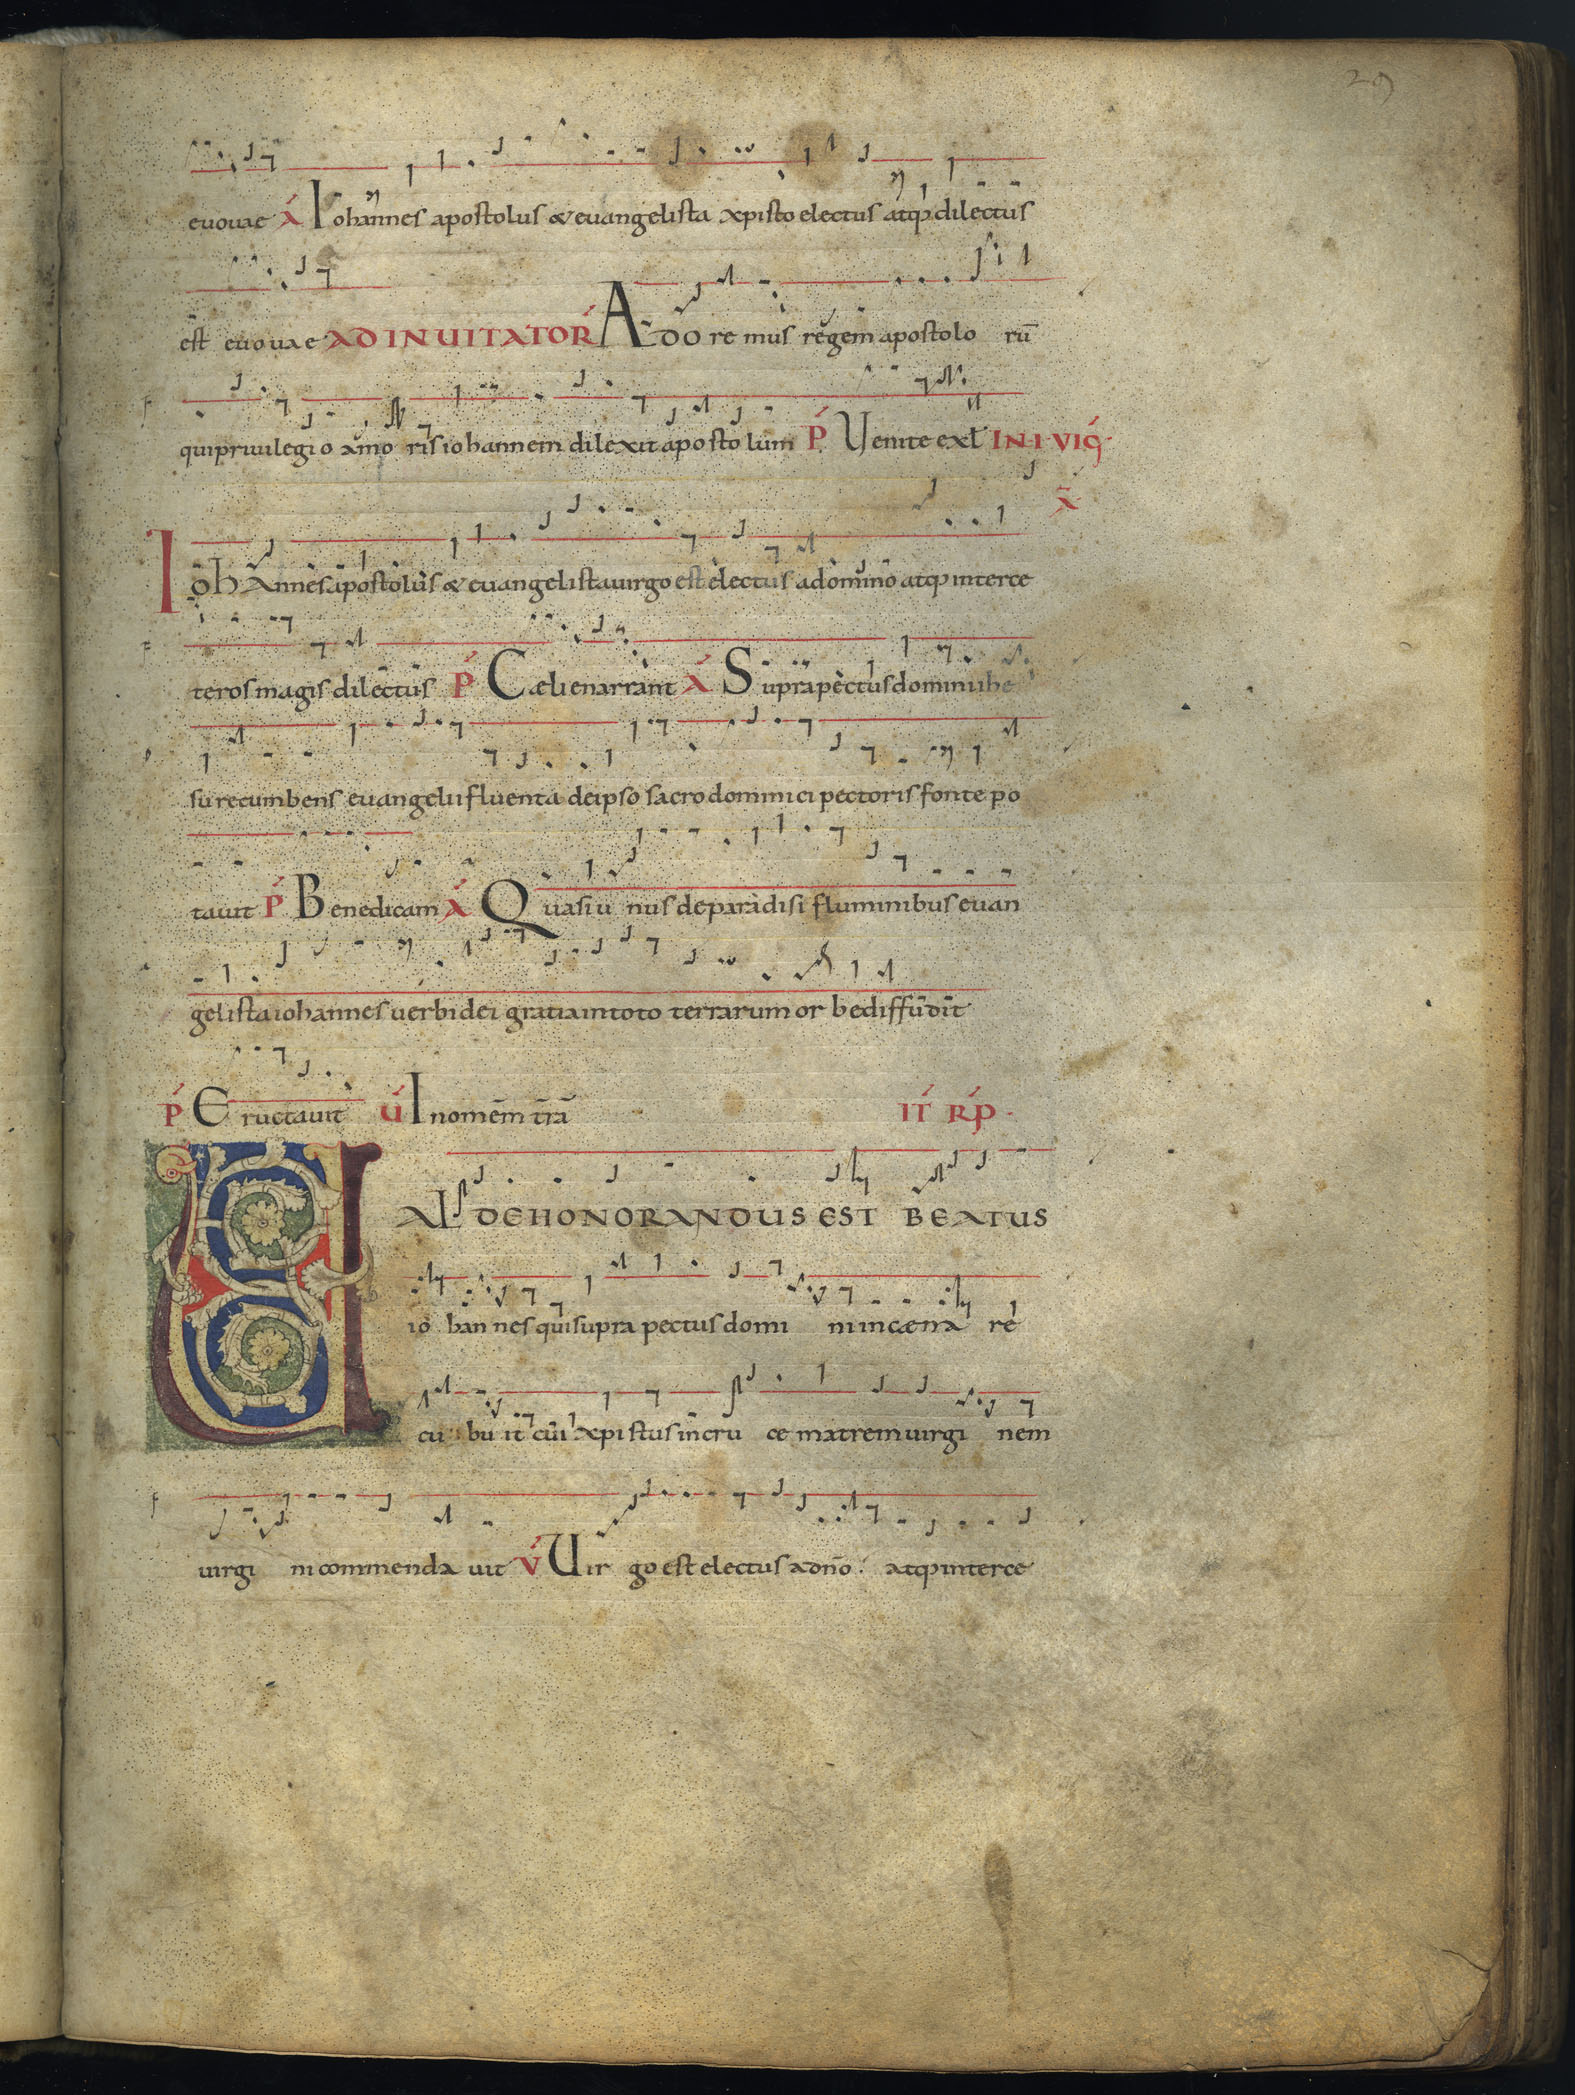 29
euouae A Iohannes apostolus & euangelista xpisto electus atq; dilectus
est euouae AD INUITATOR A DO re mus regem apostolo rū
qui priuilegio amo ris iohannem dilexit apostolum P Uenite exl IN I UIG
A
Iohannes apostolus & euangelista uirgo est electus a domino atq; inter ce
teros magis dilectus P Caeli enarrant A Supra pectus domini ihe
su recumbens euangelii fluenta de ipso sacro dominici pectoris fonte po
tauit P Benedicam A Quasi u nus de paradisi fluminibus euan
gelista iohannes uerbi dei gratia in toto terrarum or be diffudit
P Eructauit U In omēm trā IT RP
UALDE HONORANDUS EST BEATUS
io han nes qui supra pectus domi ni in caena re
cu bu it cui xpistus in cru ce matrem uirgi nem
uirgi ni commenda uit V Uir go est electus a dnō atq; inter ce